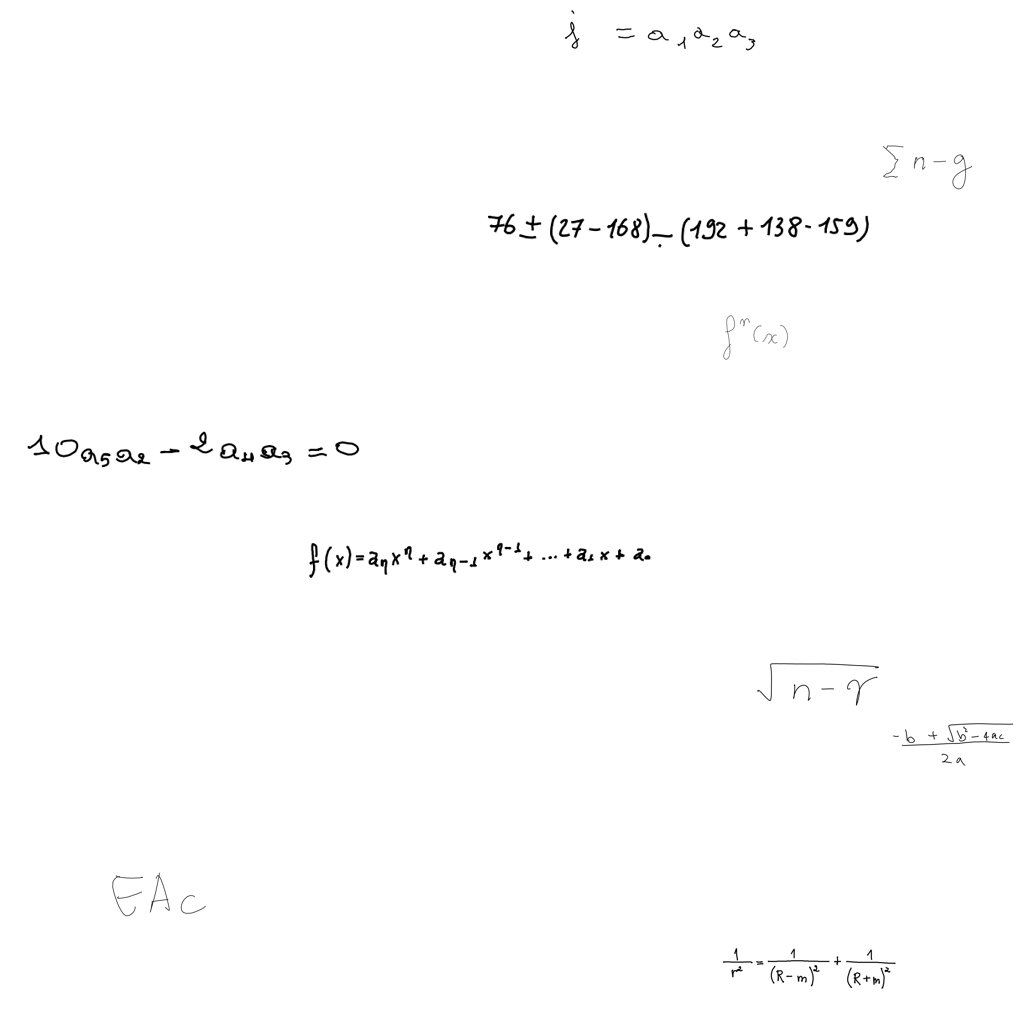 j = a₁a₂a₃
∑ n - g
76 ± (27 - 168) ÷ (192 + 138 - 159)
fⁿ(x)
10a₅a₂ - 2a₄a₃ = 0
f(x) = aₙxⁿ + aₙ₋₁xⁿ⁻¹ + ... + a₁x + a₀
√(n - γ)
(-b + √(b² - 4ac)) / 2a
EAc
1/r² = 1/(R - m)² + 1/(R + m)²